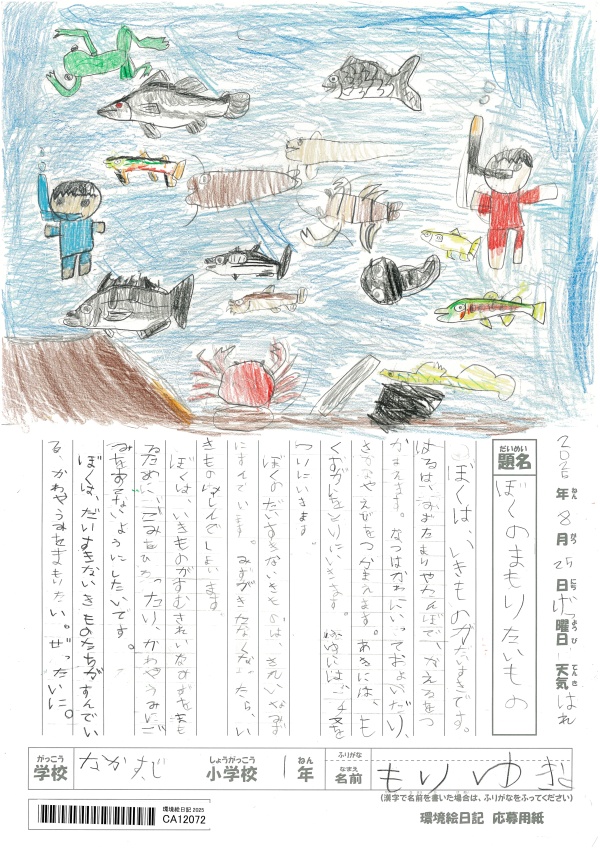 2025年8月25日げつ曜日 天気はれ
ねん がつ にち ようび てんき
だいめい
題名 ぼくのまもりたいもの
ぼくは、いきものがだいすきです。
はるは、みずたまりやたんぼで、かえるをつ
かまえます。なつはかわにいっておよいだり、
さかなやえびをつかまえます。あきには、も
くずがにとりにいきます。ふゆには、
つりにいきます。
ぼくのだいすきないきものは、きれいなみず
にすんでいます。みずがきたなくなったら、い
きものはしんでしまいます。
ぼくは、いきものがすむきれいなみずをまも
るために、ごみをひろったり、かわやうみにご
みをすてないようにしたいです。
ぼくは、だいすきないきものたちがすんでい
る、かわやうみをまもりたい。ぜったいに。
がっこう しょうがっこう ねん ふりがな なまえ
学校 なか 小学校 1年 名前 もり
(漢字で名前を書いた場合は、ふりがなをふってください)
環境絵日記 2025
CA12072
環境絵日記 応募用紙